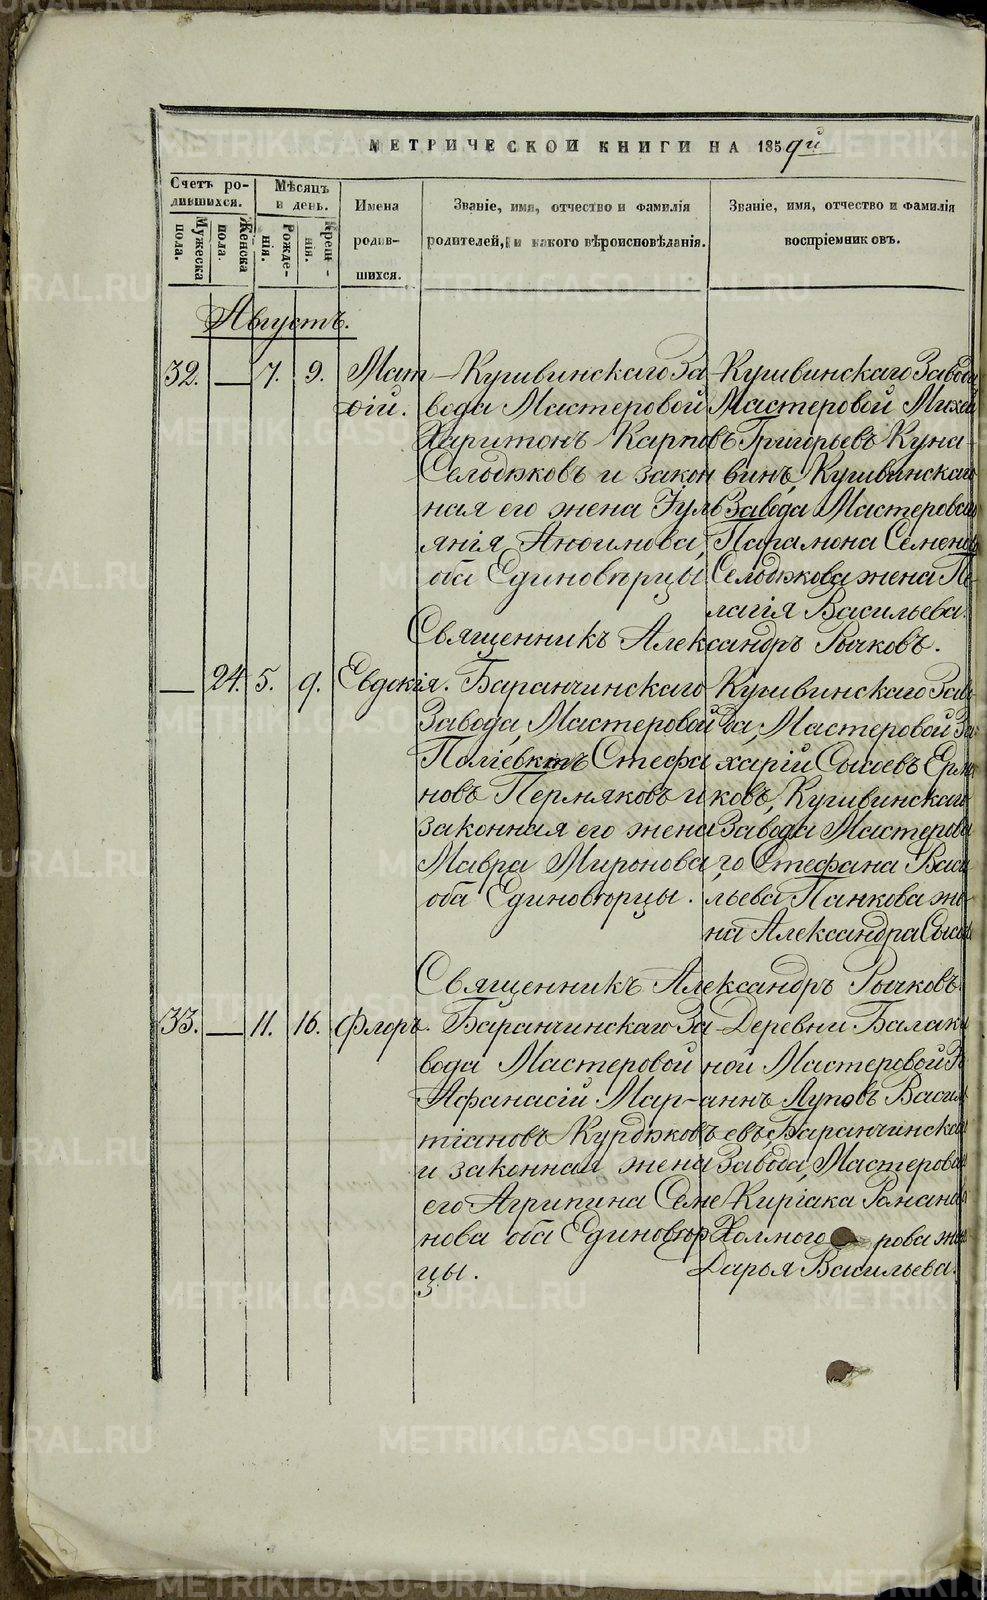 МЕТРИЧЕСКОЙ КНИГИ НА 1859й
Счетъ ро-
дившихся.
Мужеска
пола.
Женска
пола.
Мѣсяцъ
и день.
Рожде-
нія.
Крещ-
нія.
Имена
родив-
шихся.
Званіе, имя, отчество и фамилія
родителей, и какого вѣроисповѣданія.
Званіе, имя, отчество и фамилія
воспріемниковъ.
Августъ.
32. — 7. 9. Мат-
ѳій.
Кушвинскаго За-
вода Мастеровой
Харитонъ Карповъ
Селодѣковъ и закон
ная его жена Іуль
янія Анѳимова,
оба Единовѣрцы
Кушвинскаго Завода
Мастеровой Михаи
Григорьевъ Куна-
винъ, Кушвинскаго
Завода Мастероваго
Парамона Семенова
Селодѣкова жена Пе-
лагія Васильева.
Священникъ Александръ Рычковъ.
— 24. 5. 9. Евдокія.
Баранчинскаго
Завода, Мастеровой
Поліевктъ Стефа
новъ Пермяковъ и
законная его жена
Мавра Миронова
оба Единовѣрцы.
Кушвинскаго Заво
да, Мастеровой За-
харій Сысоевъ
ковъ, Кушвинскаго
Завода Мастерова
го Стефана Васи
льева Панкова же-
на Александра
Священникъ Александръ Рычковъ
33. — 11. 16. Флоръ.
Баранчинскаго За-
вода Мастеровой
Аѳанасій Мар-
тіановъ Курдѣковъ
и законная жена
его Агрипина Семе
нова оба Единовѣр
цы.
Деревни Балаки
ной Мастеровой
Луповъ Васил
евъ Баранчинскаго
Завода, Мастероваго
Киріака Романа
Холмого рова жена
Дарья Васильева.
METRIKI.GASO-URAL.RU